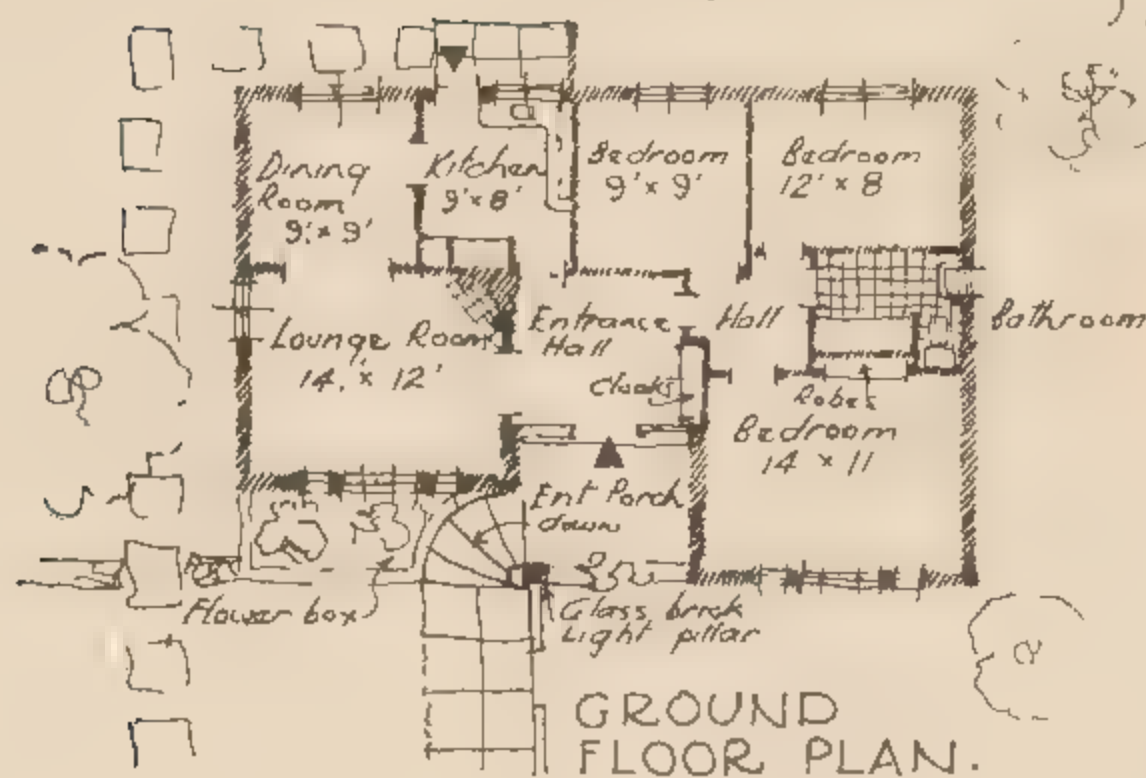 Dining
Room
9' x 9'
Kitchen
9' x 8'
Bedroom
9' x 9'
Bedroom
12' x 8
Lounge Room
14' x 12'
Entrance
Hall
Hall
Bathroom
Cloaks
Robes
Bedroom
14 x 11
Ent Porch
down
Flower box
Glass brick
Light pillar
GROUND
FLOOR PLAN.